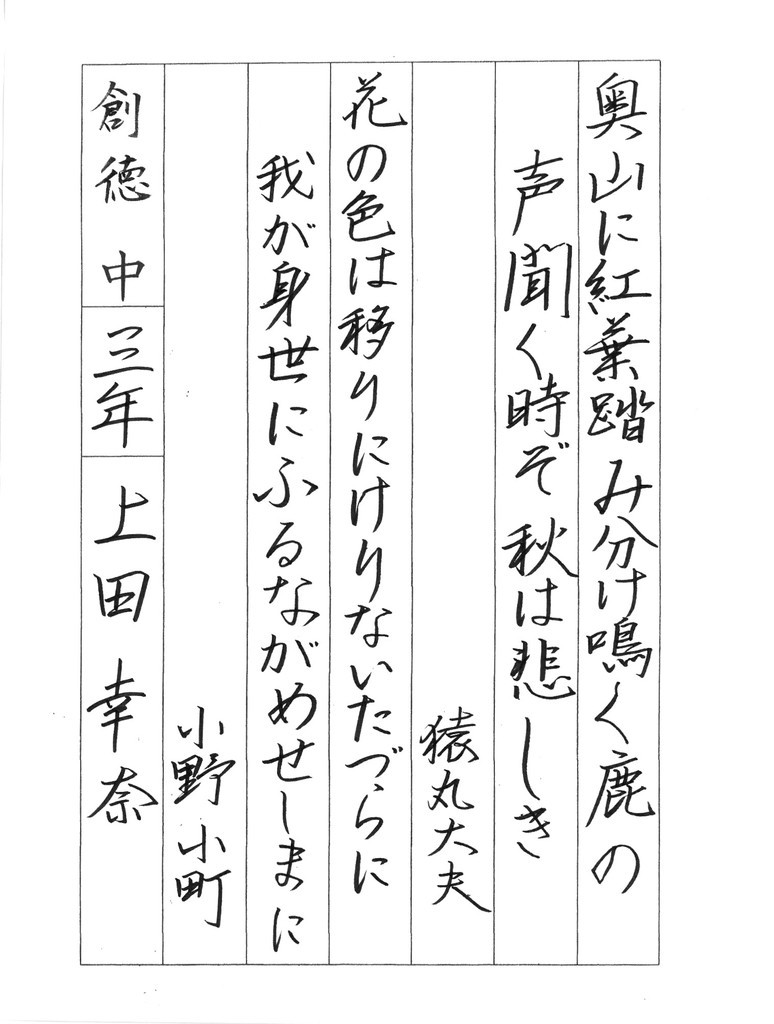 奥山に紅葉踏み分け鳴く鹿の
声聞く時ぞ秋は悲しき
猿丸大夫
花の色は移りにけりないたづらに
我が身世にふるながめせしまに
小野小町
創徳中三年上田幸奈